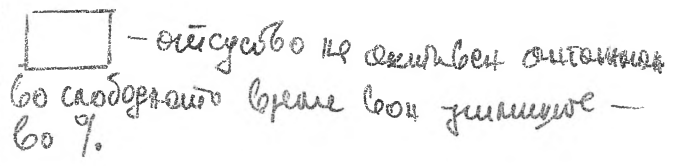 – отсуство на активен
во слободното време вон училиште –
во %.